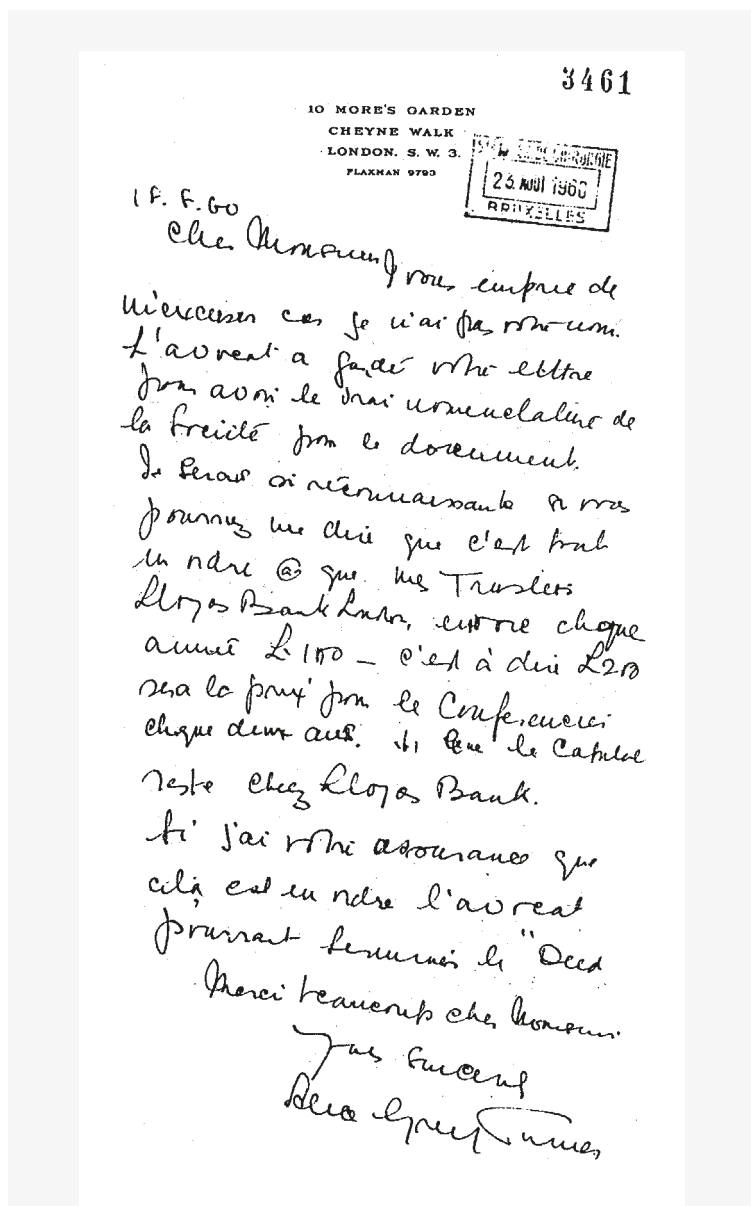 3461
10 MORE'S GARDEN
CHEYNE WALK
LONDON. S. W. 3.
FLAXMAN 9793
23. AOUT 1960
BRUXELLES
Cher Monsieur, Je vous en prie de
m'excuser car je n'ai pas votre nom.
L'avocat a gardé votre lettre
pour avoir le vrai nomenclature de
la Société pour le document.
Je serais si réconnaissante si vous
pourriez me dire que c'est tout
en ordre que mes Trustees
Lloyds Bank London, envoie chaque
année £100 – c'est à dire £200
sera la prix pour le Conferencier
chaque deux ans. le Capital
reste chez Lloyds Bank.
Si j'ai votre assurance que
cela est en ordre l'avocat
pourrait terminer le "Deed
Merci beaucoup cher Monsieur
Yours sincerely
Grey Turner